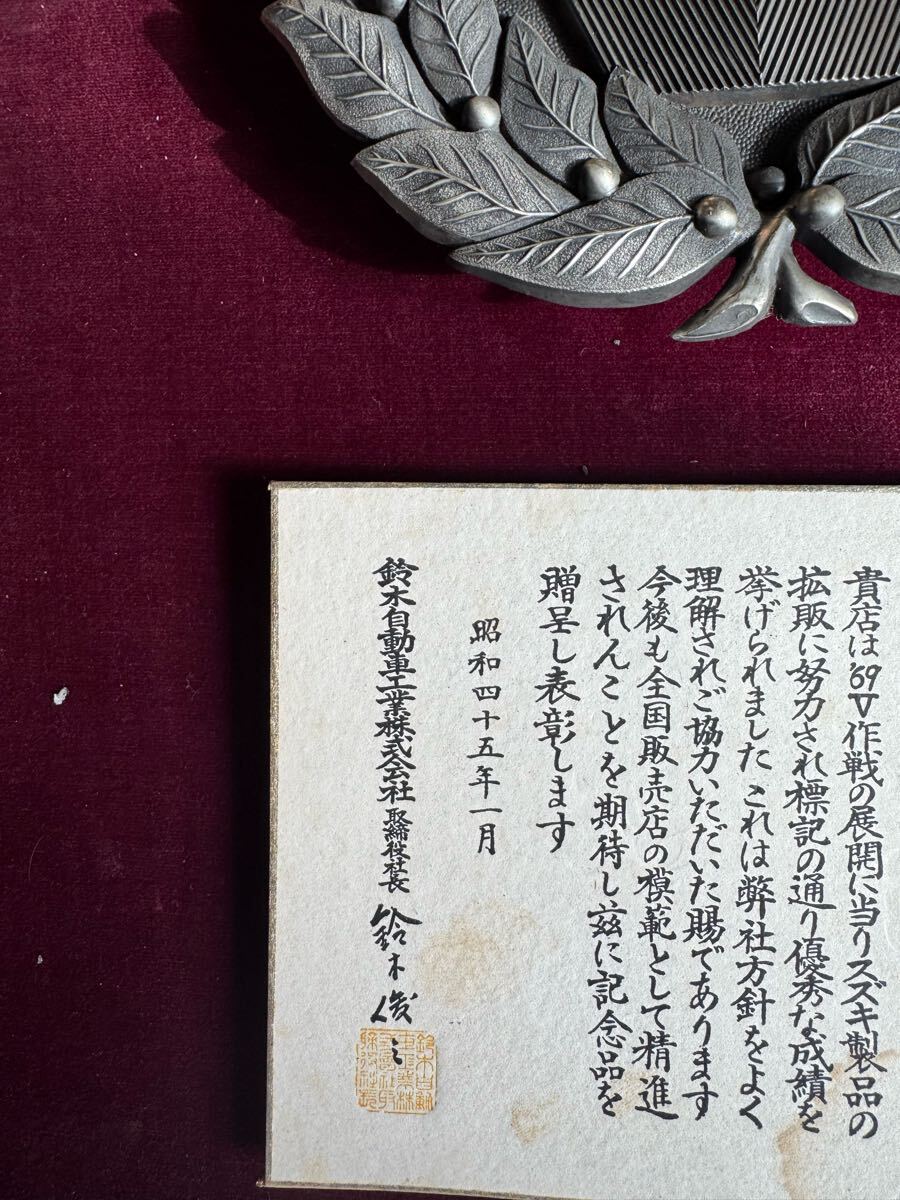 貴店は'69▽作戦の展開に当りスズキ製品の
拡販に努力され標記の通り優秀な成績を
挙げられました これは弊社方針をよく
理解されご協力いただいた賜であります
今後も全国販売店の模範として精進
されんことを期待し茲に記念品を
贈呈し表彰します
昭和四十五年一月
鈴木自動車工業株式会社 取締役社長 鈴木俊三